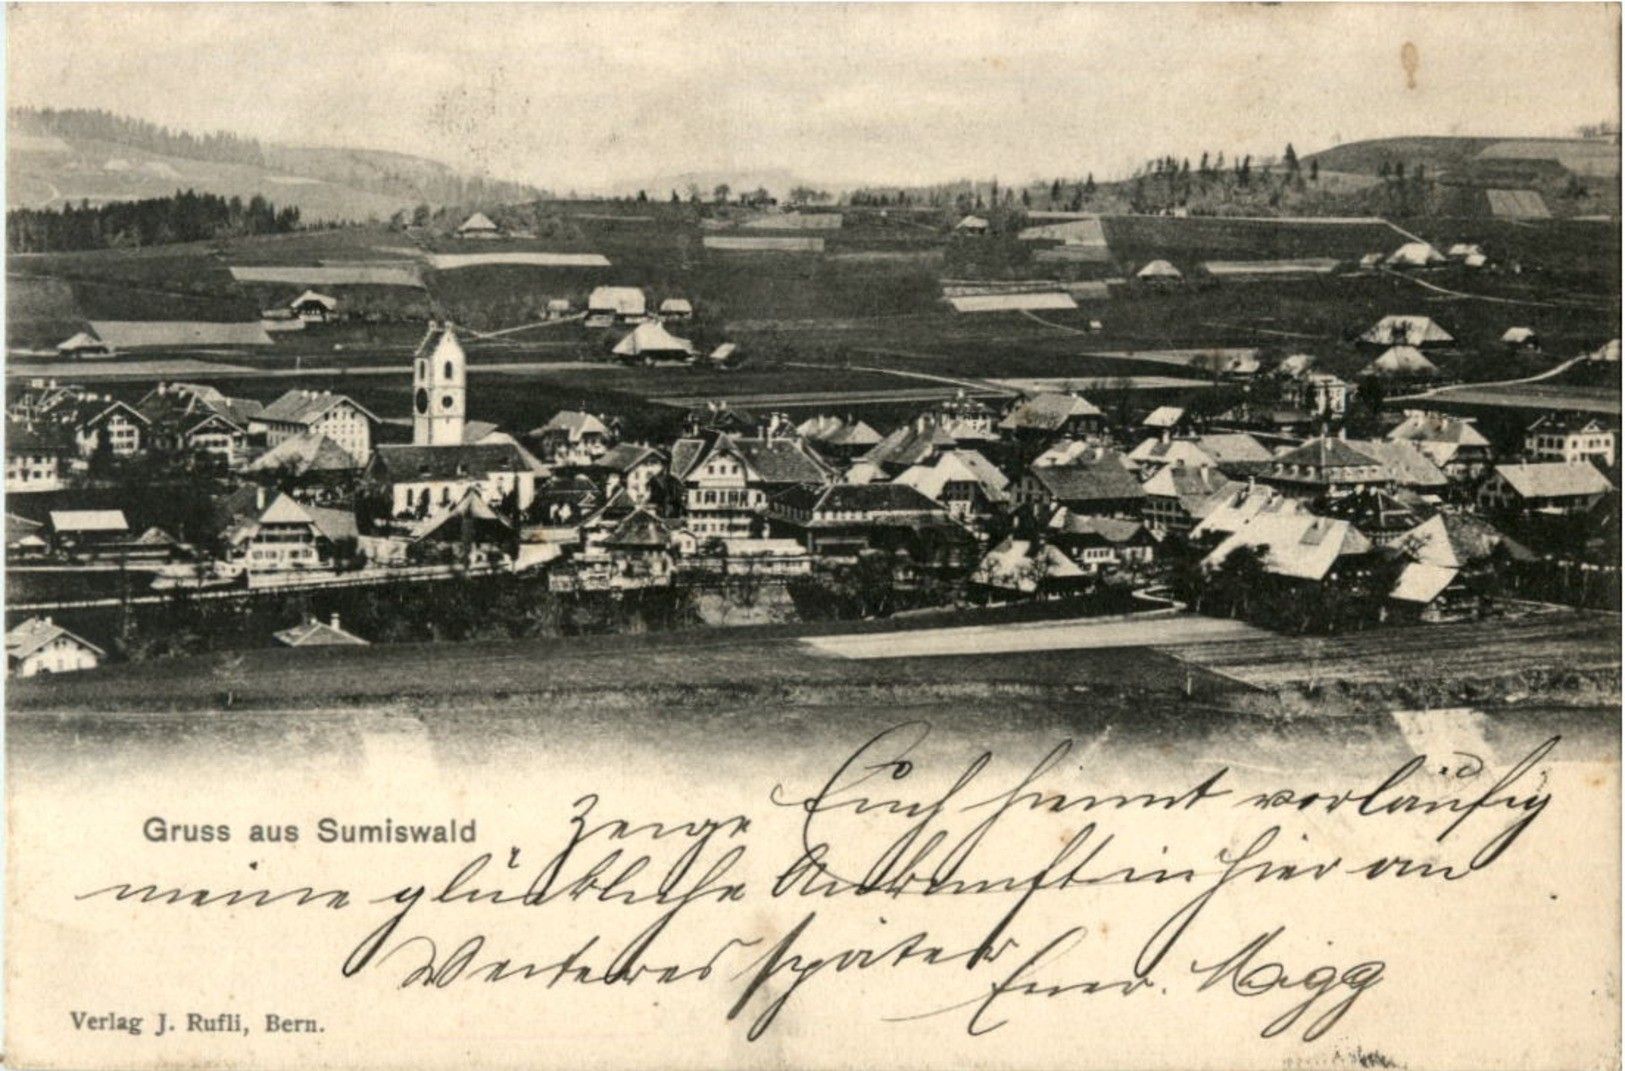 Gruss aus Sumiswald
Zeige Euch hiemit vorläufig
meine glückliche Ankunft in hier an
Weiteres später
Euer.
Verlag J. Rufli, Bern.